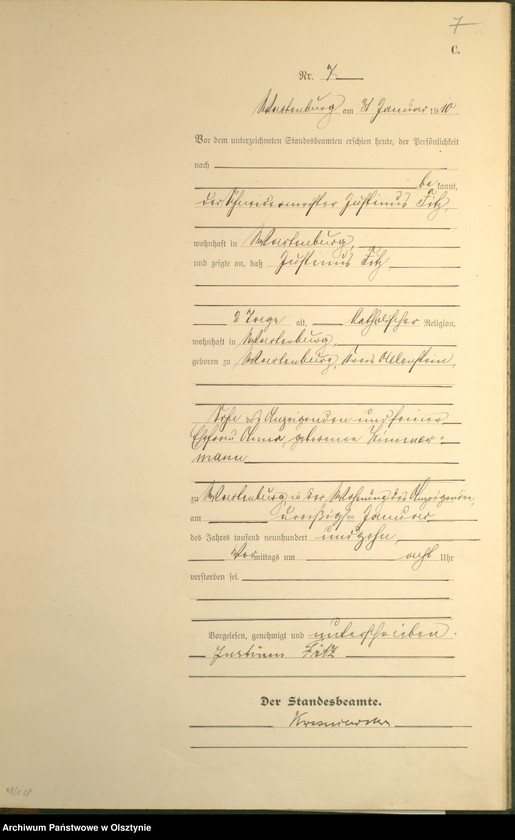 7
C.
Nr. 7.
Wartenburg am 31 Januar 1910.
Vor dem unterzeichneten Standesbeamten erschien heute, der Persönlichkeit
nach
be kannt,
der Schneidermeister Justinus Fitz,
wohnhaft in Wartenburg,
und zeigte an, daß Justinus Fitz
2 Tage alt, katholischer Religion,
wohnhaft in Wartenburg,
geboren zu Wartenburg, Kreis Allenstein,
Sohn des Anzeigenden und seiner
Ehefrau Anna, geborenen Zimmer-
mann
zu Wartenburg in der Wohnung des Anzeigenden,
am dreißigsten Januar
des Jahres tausend neunhundert und zehn,
Vormittags um acht Uhr
verstorben sei.
Vorgelesen, genehmigt und unterschrieben.
Justinus Fitz
Der Standesbeamte.
Archiwum Państwowe w Olsztynie